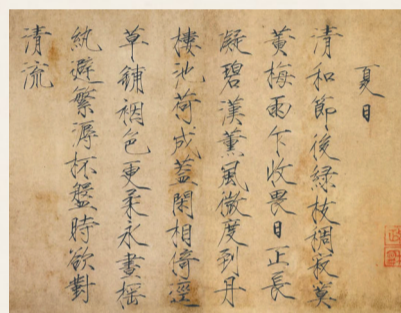 夏日
清和節後綠枝稠寂寞
黃梅雨乍收畏日正長
凝碧漢薰風微度到丹
樓池荷成蓋閒相倚逕
草鋪裀色更柔永晝搖
紈避繁溽杯盤時欲對
清流